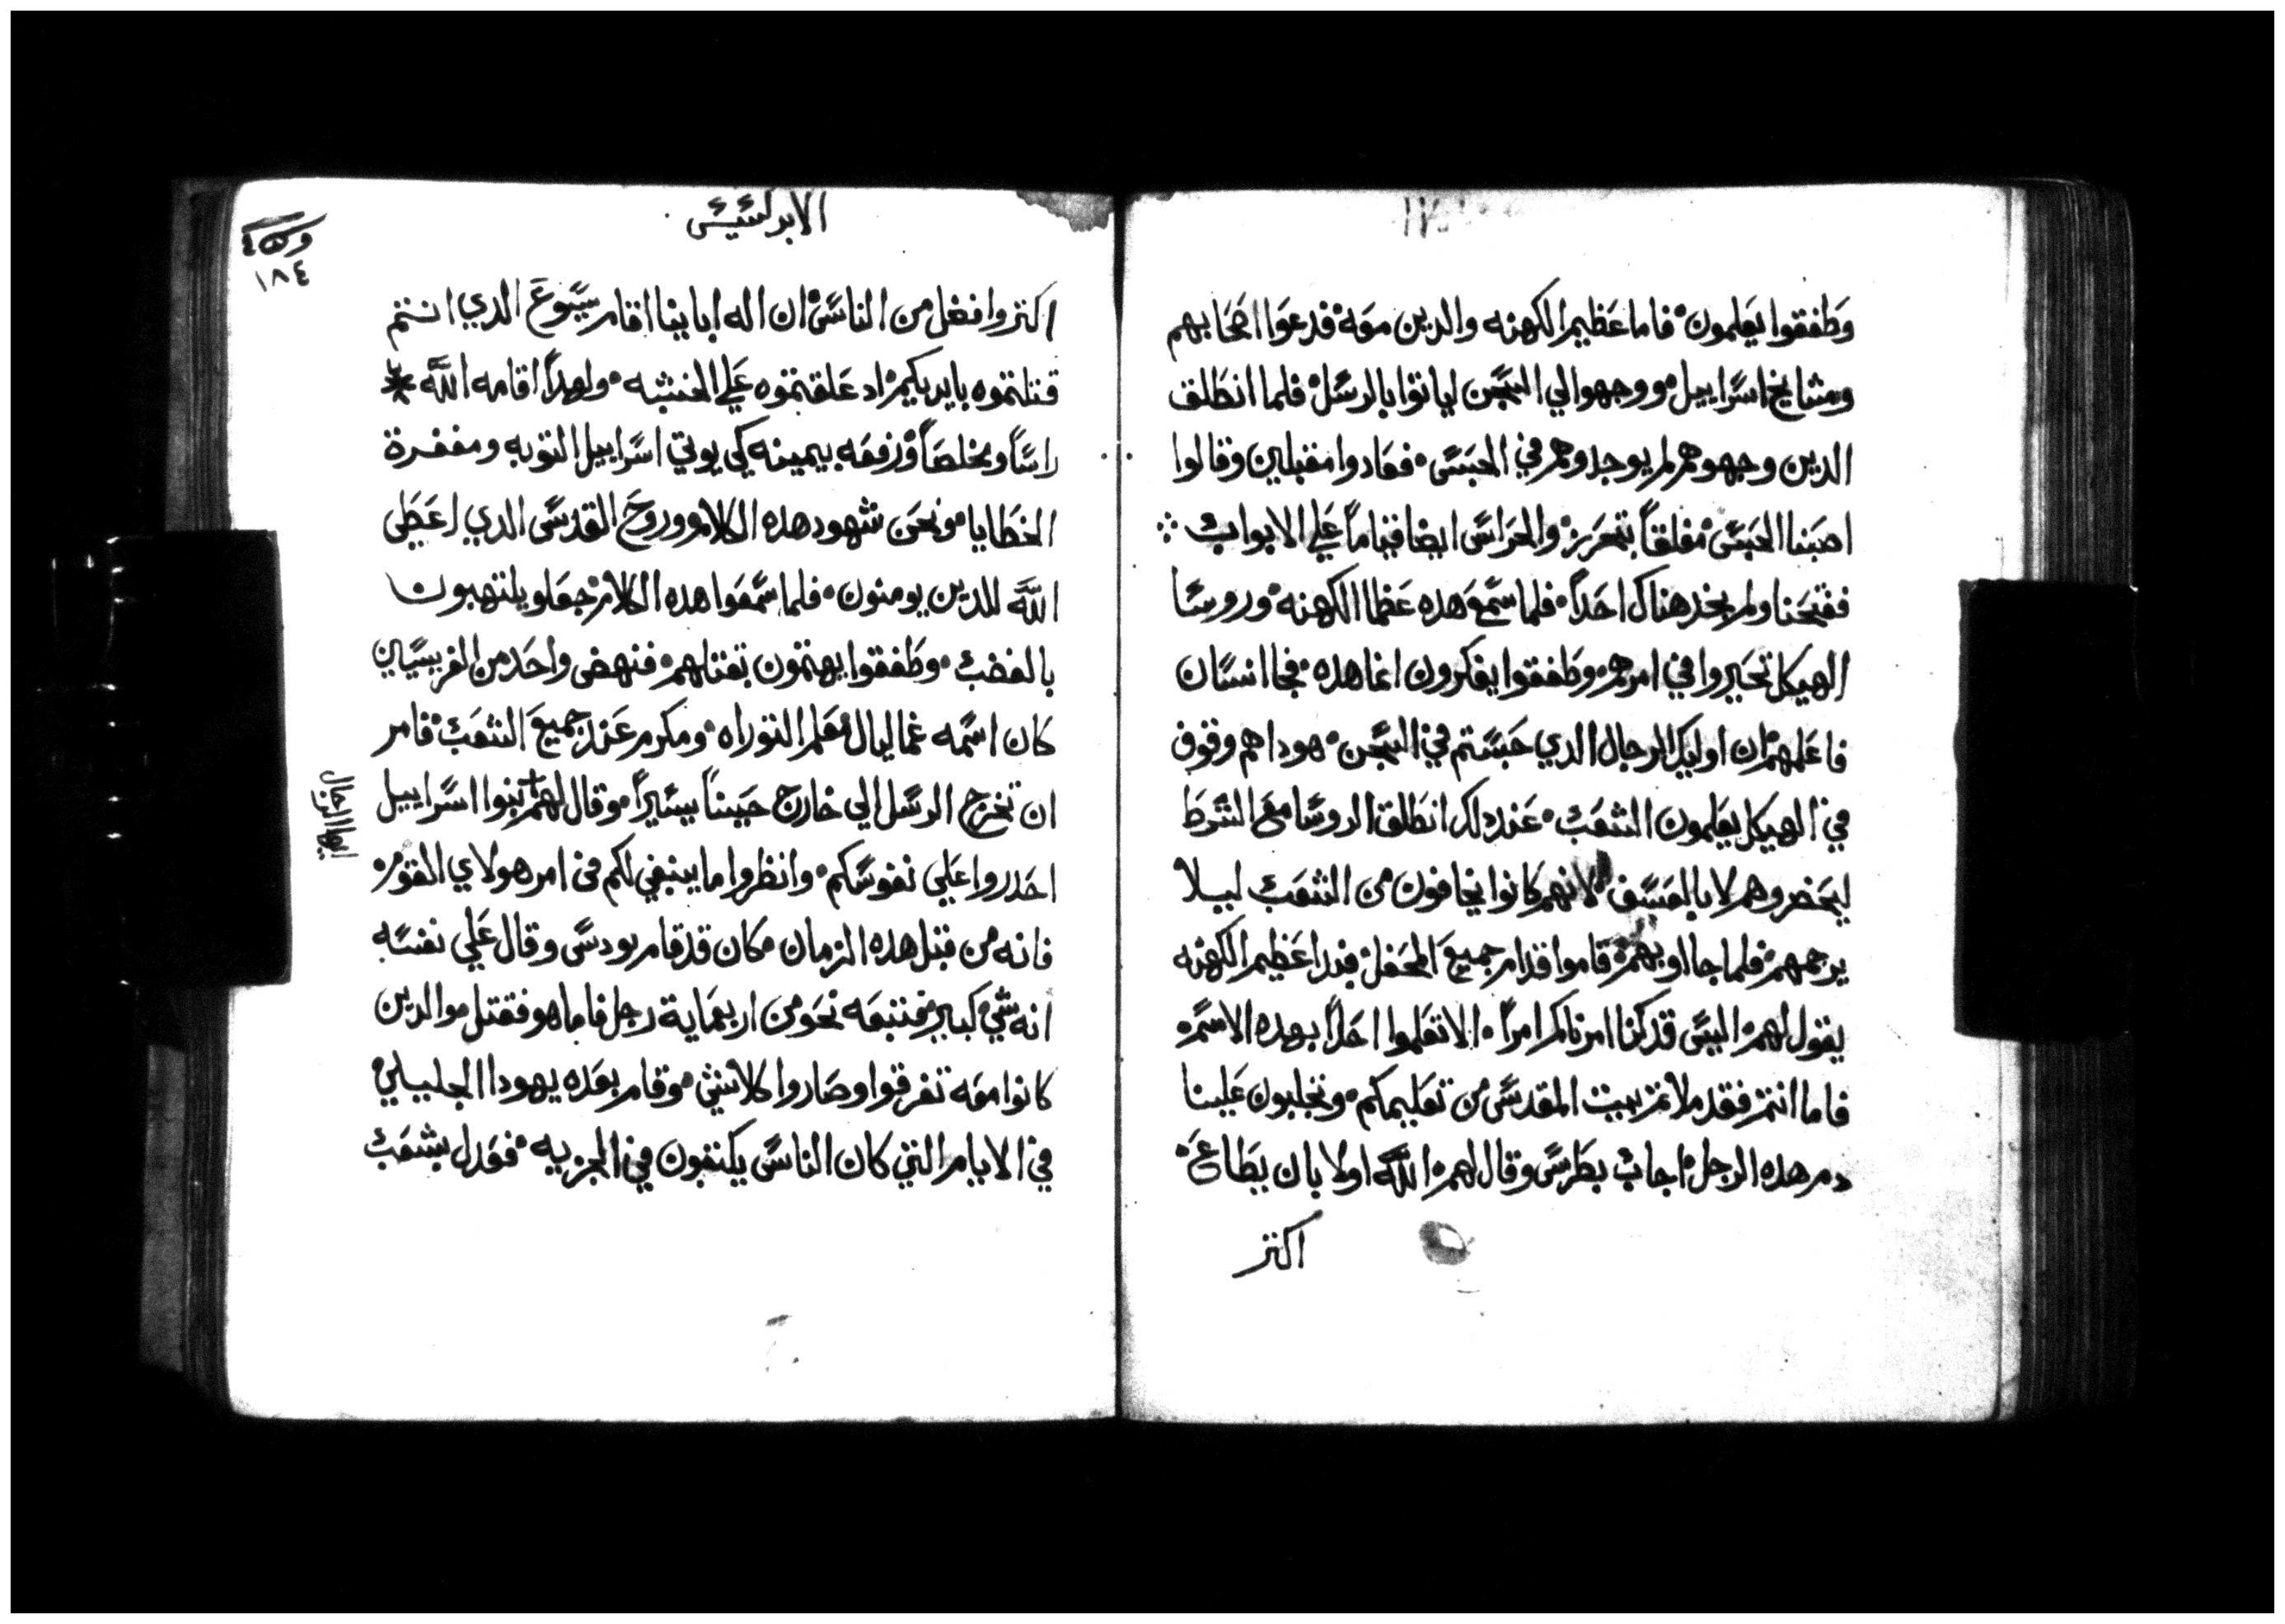 وطفقوا يعلمون فاما عظيم الكهنه والدين معه فدعوا اصحابهم
ومشايخ اسراييل ووجهوا الي السجن لياتوا بالرسل فلما انطلق
الدين وجهوهم لم يوجدوهم في الحبس فعادوا مقبلين وقالوا
اصبنا الحبس مغلقاً بتحريز والحراس ايضا قياماً علي الابواب
ففتحنا ولم نجد هناك احداً فلما سمع هده عظما الكهنه وروسا
الهيكل تحيروا في امرهم وطفقوا يفكرون انما هده فجا انسان
فاعلمهم ان اوليك الرجال الدي حبستم في السجن هوداهم وقوف
في الهيكل يعلمون الشعب عند دلك انطلق الروسا مع الشرط
ليحضروهم لا بالعسف لانهم كانوا يخافون من الشعب ليلا
يرجمهم فلما جااو بهم قاموا قدام جميع المحفل فبدا عظيم الكهنه
يقول لهم اليس قد كنا امرناكم امراً الا تعلموا احداً بهده الاسم
فاما انتم فقد ملاتم بيت المقدس من تعليمكم وتجلبون علينا
دم هده الرجل اجاب بطرس وقال لهم الله اولا بان يطاع
اكتر
الابركسيس
١٨٤
اكتر وافضل من الناس ان اله ابايينا اقام يسوع الدي انتم
قتلتموه بايديكم اد علقتموه علي الخشبه ولهدا اقامه الله
راساً ومخلصاً ورفعه بيمينه كي يوتي اسراييل التوبه ومغفرة
الخطايا ونحن شهود هده الكلام وروح القدس الدي اعطي
الله للدين يومنون فلما سمعوا هده الكلام جعلو يلتهبون
بالغضب وطفقوا يهتمون بقتلهم فنهض واحد من الفريسيين
كان اسمه غماليال معلم التوراه ومكرم عند جميع الشعب فامر
ان تخرج الرسل الي خارج حيناً يسيراً وقال لهم بنوا اسراييل
ايها الرجال
احدروا علي نفوسكم وانظروا ما ينبغي لكم في امر هولاي القوم
فانه من قبل هده الزمان كان قد قام يودس وقال علي نفسه
انه شي كبير فتبعه نحو من اربعماية رجل فاما هو فقتل والدين
كانوا معه تفرقوا وصاروا كلاشي وقام بعده يهودا الجليلي
في الايام التي كان الناس يكتبون في الجزيه فعدل بشعب